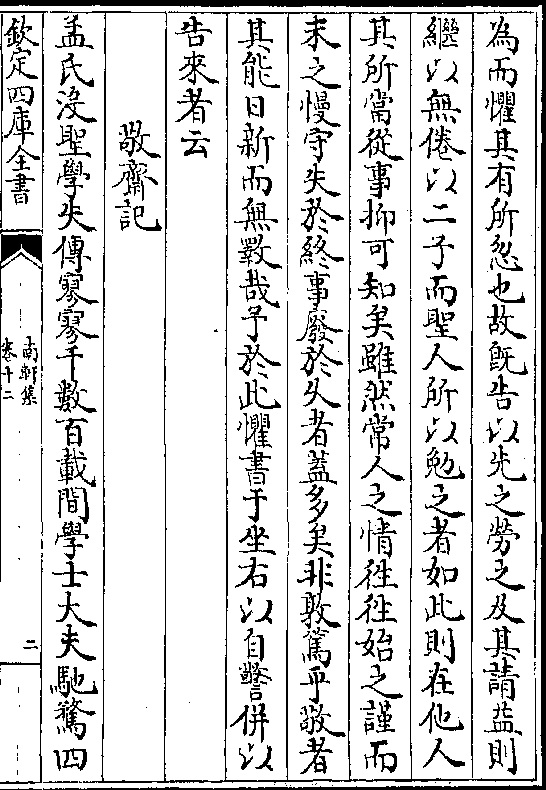 為而懼其有所忽也故既告以先之勞之及其請益則
繼以無倦以二子而聖人所以勉之者如此則在他人
其所當從事抑可知矣雖然常人之情徃徃始之謹而
末之慢守失於終事廢於久者蓋多矣非敦篤乎敬者
其能日新而無斁哉予於此懼書于坐右以自警併以
告來者云
敬齋記
孟氏没聖學失傳寥寥千數百載間學士大夫馳騖四
欽定四庫全書
南軒集
卷十二
二